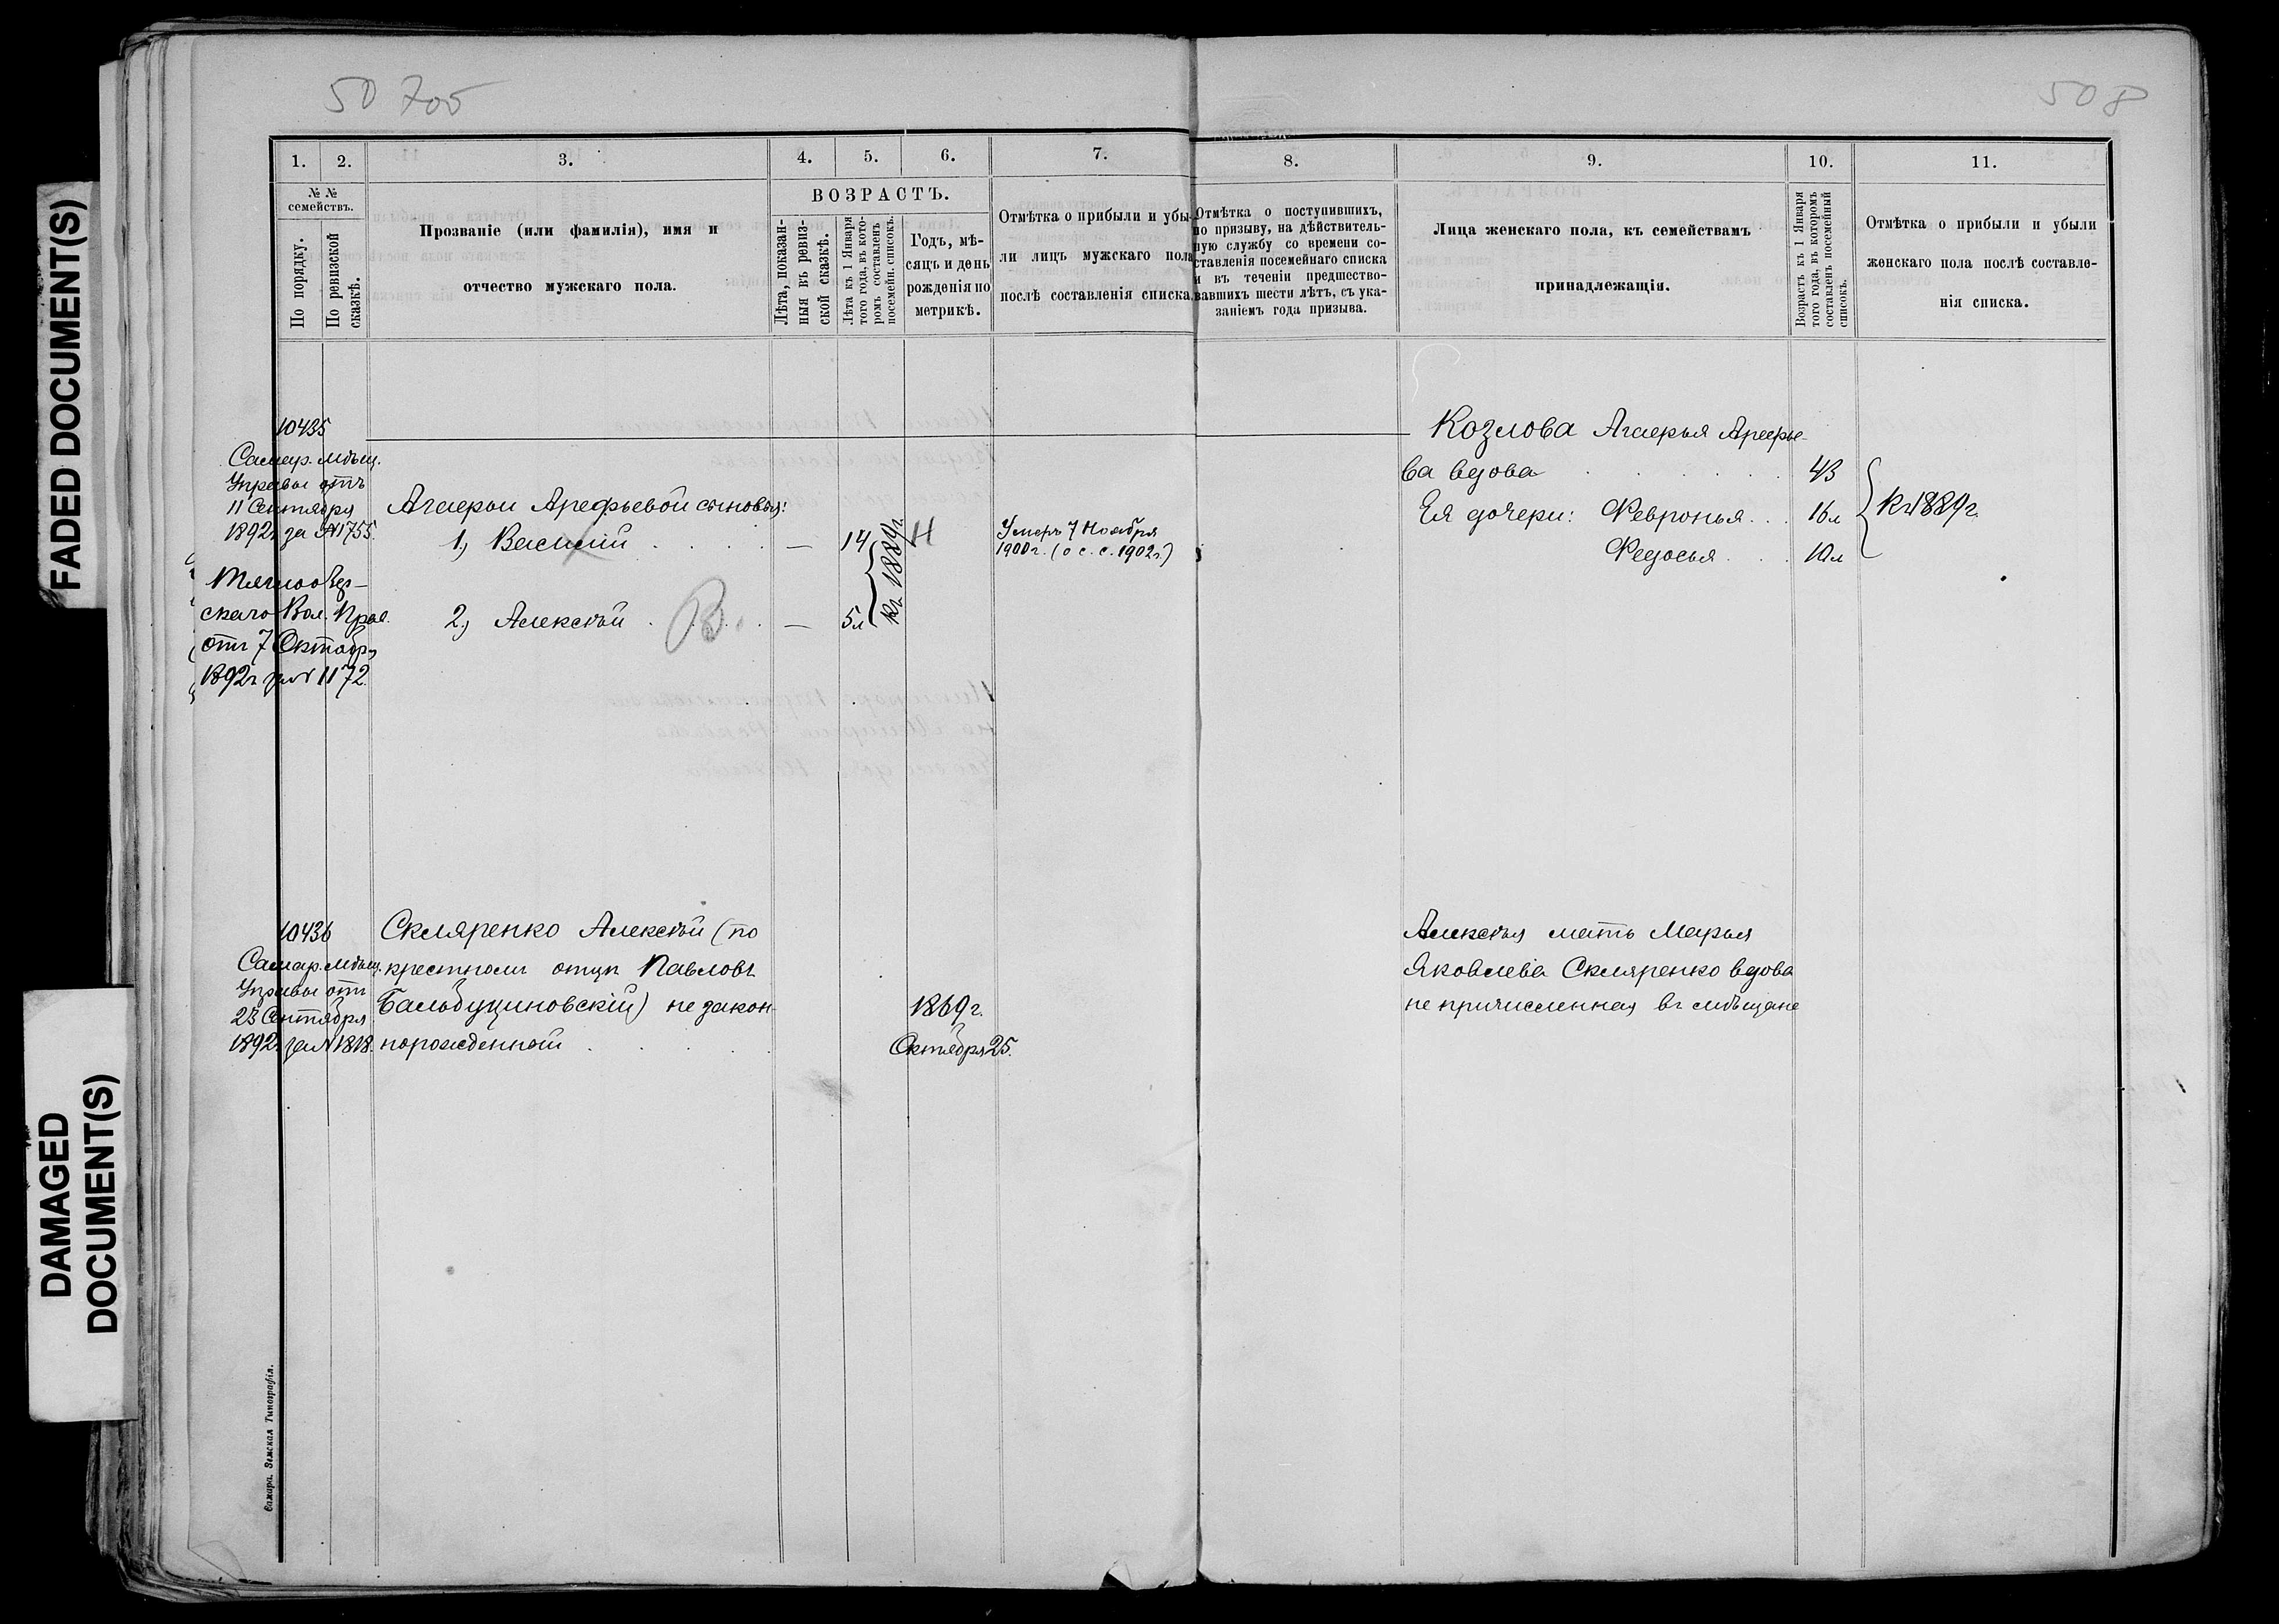 50 705
508
FADED DOCUMENT(S)
DAMAGED
DOCUMENT(S)
1. 2. 3. 4. 5. 6. 7. 8. 9. 10. 11.
№ №
семействъ.
По порядку.
По ревизской
сказкѣ.
Прозваніе (или фамилія), имя и
отчество мужскаго пола.
ВОЗРАСТЪ.
Лѣта, показан-
ныя въ ревиз-
ской сказкѣ.
Лѣта къ 1 Января
того года, въ кото-
ромъ составленъ
посемейн. списокъ.
Годъ, мѣ-
сяцъ и день
рожденія по
метрикѣ.
Отмѣтка о прибыли и убы-
ли лицъ мужскаго пола
послѣ составленія списка.
Отмѣтка о поступившихъ,
по призыву, на дѣйствитель-
ную службу со времени со-
ставленія посемейнаго списка
и въ теченіи предшество-
вавшихъ шести лѣтъ, съ ука-
заніемъ года призыва.
Лица женскаго пола, къ семействамъ
принадлежащія.
Возрастъ къ 1 Января
того года, въ которомъ
составленъ посемейный
списокъ.
Отмѣтка о прибыли и убыли
женскаго пола послѣ составле-
нія списка.
10435
Самар. Мѣщ.
Управы отъ
11 Сентября
1892г за №1755.
Тяглоозер-
скаго Вол. Прав.
отъ 7 Октабря
1892г за № 1172.
Агаѳьи Арефьевой сыновья:
1, Василій . . . . — 14
2, Алексѣй . . . . — 5л
В
къ 1889г.
Н
Умеръ 7 Ноября
1900г. (о с. с. 1902г.)
Козлова Агаѳья Арефье-
ва вдова . . . . 43
Ея дочери: Февронья . . . 16л
Федосья . . . 10л
Къ 1889г.
10436
Самар. Мѣщ.
Управы отъ
23 Сентября
1892г за № 1818.
Скляренко Алексѣй (по
крестному отцу Павловъ
Бальбуциновскій) незакон-
норожденный . . . .
1869г.
Октября 25.
Алексѣя мать Марья
Яковлева Скляренко вдова
не причисленная въ мѣщане
Самара. Земская Типографія.